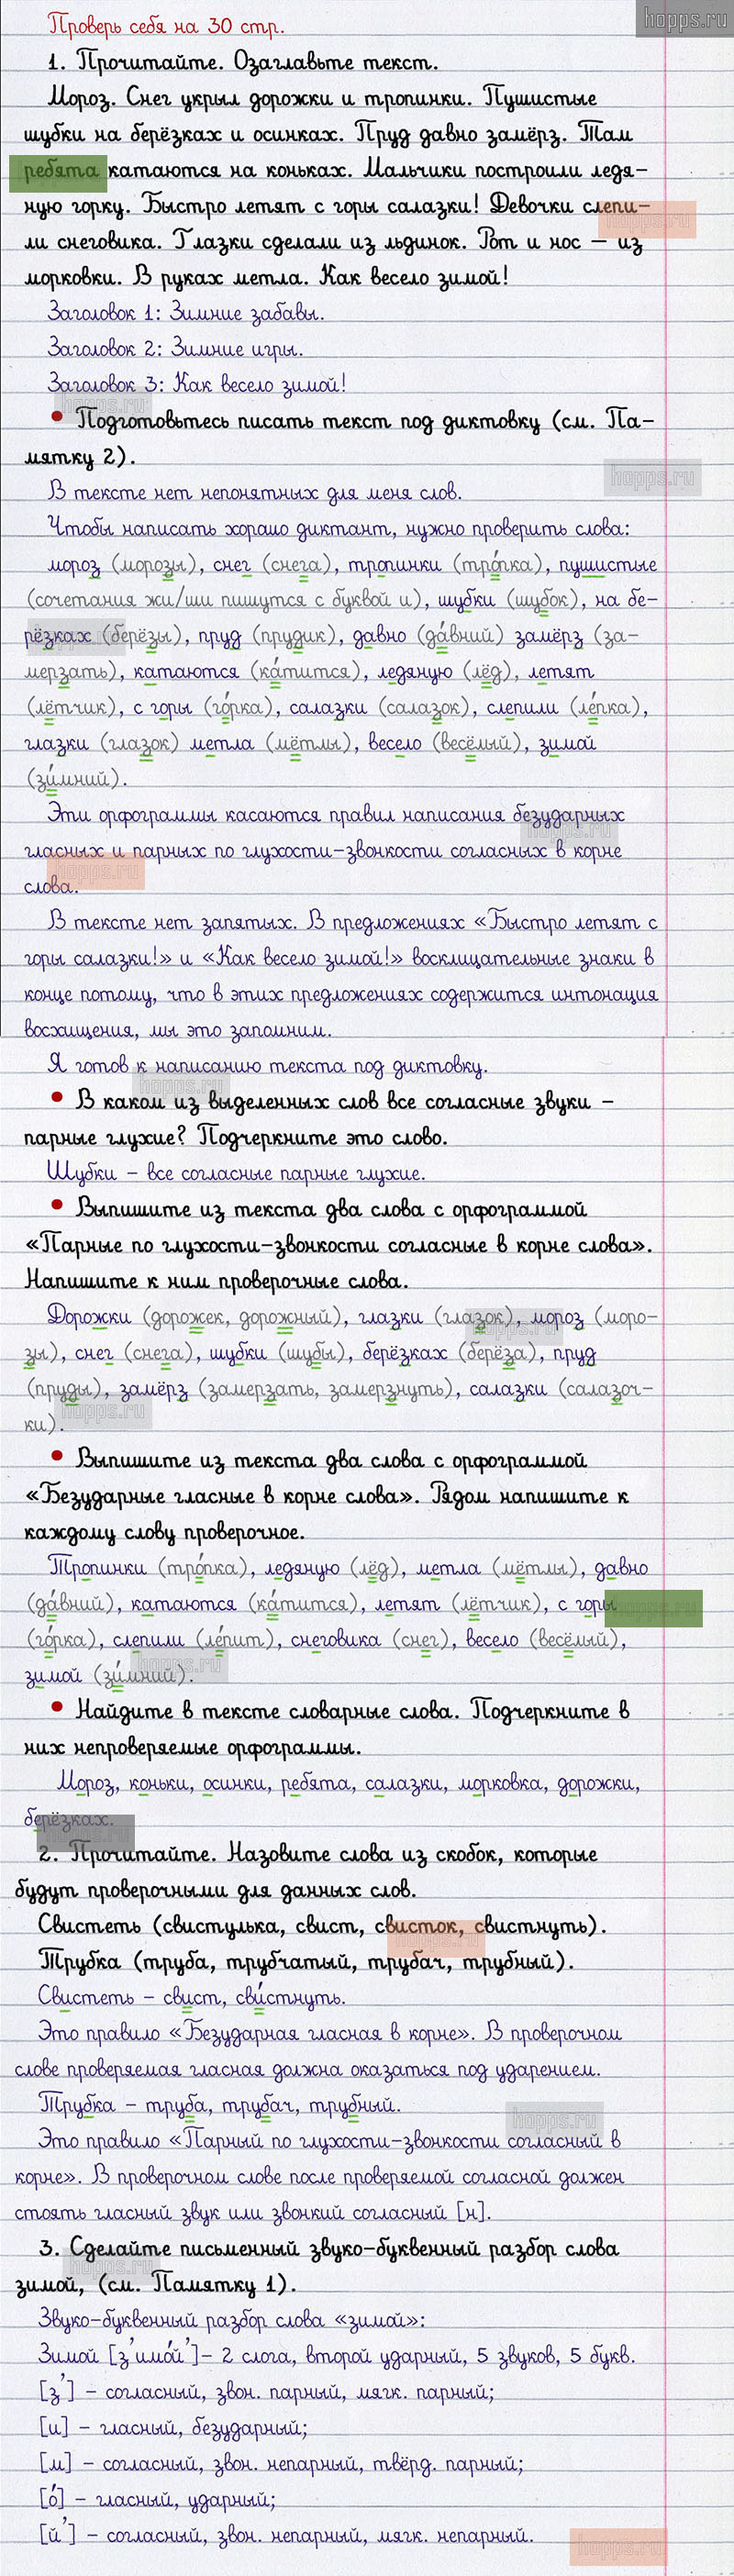 hopps.ru
Проверь себя на 30 стр.
1. Прочитайте. Озаглавьте текст.
Мороз. Снег укрыл дорожки и тропинки. Пушистые
шубки на берёзках и осинках. Пруд давно замёрз. Там
ребята катаются на коньках. Мальчики построили ледя-
ную горку. Быстро летят с горы салазки! Девочки слепи-
ли снеговика. Глазки сделали из льдинок. Рот и нос – из
морковки. В руках метла. Как весело зимой!
Заголовок 1: Зимние забавы.
Заголовок 2: Зимние игры.
Заголовок 3: Как весело зимой!
• Подготовьтесь писать текст под диктовку (см. Па-
мятку 2).
В тексте нет непонятных для меня слов.
Чтобы написать хорошо диктант, нужно проверить слова:
мороз (морозы), снег (снега), тропинки (тро́пка), пушистые
(сочетания жи/ши пишутся с буквой и), шубки (шубок), на бе-
рёзках (берёзы), пруд (прудик), давно (да́вний) замёрз (за-
мерзать), катаются (ка́тится), ледяную (лёд), летят
(лётчик), с горы (го́рка), салазки (салазок), слепили (ле́пка),
глазки (глазок) метла (мётлы), весело (весёлый), зимой
(зи́мний).
Эти орфограммы касаются правил написания безударных
гласных и парных по глухости-звонкости согласных в корне
слова.
В тексте нет запятых. В предложениях «Быстро летят с
горы салазки!» и «Как весело зимой!» восклицательные знаки в
конце потому, что в этих предложениях содержится интонация
восхищения, мы это запомним.
Я готов к написанию текста под диктовку.
• В каком из выделенных слов все согласные звуки –
парные глухие? Подчеркните это слово.
Шубки – все согласные парные глухие.
• Выпишите из текста два слова с орфограммой
«Парные по глухости-звонкости согласные в корне слова».
Напишите к ним проверочные слова.
Дорожки (дорожек, дорожный), глазки (глазок), мороз (моро-
зы), снег (снега), шубки (шубы), берёзках (берёза), пруд
(пруды), замёрз (замерзать, замерзнуть), салазки (салазоч-
ки).
• Выпишите из текста два слова с орфограммой
«Безударные гласные в корне слова». Рядом напишите к
каждому слову проверочное.
Тропинки (тро́пка), ледяную (лёд), метла (мётлы), давно
(да́вний), катаются (ка́тится), летят (лётчик), с горы
(го́рка), слепили (ле́пит), снеговика (снег), весело (весёлый),
зимой (зи́мний).
• Найдите в тексте словарные слова. Подчеркните в
них непроверяемые орфограммы.
Мороз, коньки, осинки, ребята, салазки, морковка, дорожки,
берёзках.
2. Прочитайте. Назовите слова из скобок, которые
будут проверочными для данных слов.
Свистеть (свистулька, свист, свисток, свистнуть).
Трубка (труба, трубчатый, трубач, трубный).
Свистеть – свист, сви́стнуть.
Это правило «Безударная гласная в корне». В проверочном
слове проверяемая гласная должна оказаться под ударением.
Трубка – труба, трубач, трубный.
Это правило «Парный по глухости-звонкости согласный в
корне». В проверочном слове после проверяемой согласной должен
стоять гласный звук или звонкий согласный [н].
3. Сделайте письменный звуко-буквенный разбор слова
зимой, (см. Памятку 1).
Звуко-буквенный разбор слова «зимой»:
Зимой [з'имо́й']- 2 слога, второй ударный, 5 звуков, 5 букв.
[з'] – согласный, звон. парный, мягк. парный;
[и] – гласный, безударный;
[м] – согласный, звон. непарный, твёрд. парный;
[о́] – гласный, ударный;
[й'] – согласный, звон. непарный, мягк. непарный.
hopps.ru